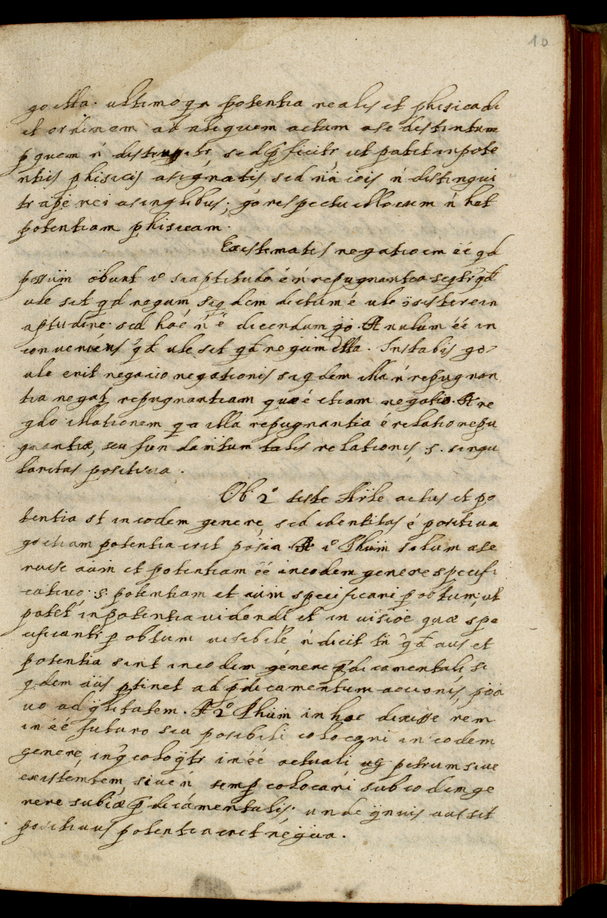 10
go illa. ultimo qa potentia realis et phisica di
cit ordinem ad aliquem actum a se distintum
p quem n distin tr, sed pficitr ut patet in pote
ntiis phisicis asignatis sed na cois n distingui
tr a pe rei a singlibus; go respectu illorum n het
potentiam phisicam.
Existematis negationem ee qd
possum obunt 1o siaptitudo e n repugnantia seqtr qd
ule sit qd negum siqdem dictum e ule existere in
aptudine sed hoc n e dicendum go. R nulum ee in
conveniens qd ule sit qd negum illa. Instabis go
ule erit negacio negationis siqdem illa n repugnan
tia negat repugnantiam quae etiam negatio. R ne
gdo illationem qa illa repugnantia e relatio repu
gnantiae, seu fundamtum talis relationis, s. singu
laritas positiva.
Ob 2o teste Arile actus et po
tentia st in eodem genere, sed identitas e positiva
go etiam potentia erit posiva R 1o Phum solum ase
ruise aum et potentiam ee in eodem genere specifi
cativo s. potentiam et aum specificari p obtum, ut
patet in potentia videndi et in visioe quae spe
cificantr p obtum visibile n dicit tn qd aus et
potentia sint in eodem genere pdicamentali si
qdem aus ptinet ad pdicamentum accionis, poa
vo ad qlitatem. R 2o Phum in hoc dixisse rem
in ee futuro seu posibili colocari in eodem
genere, in q coloqtr in ee actuali ug petrum sive
existemtem sive n semp colocari sub eodem ge
nere subiae pdicamentalis. unde qnvis aus sit
positivus potentia erit negiva.